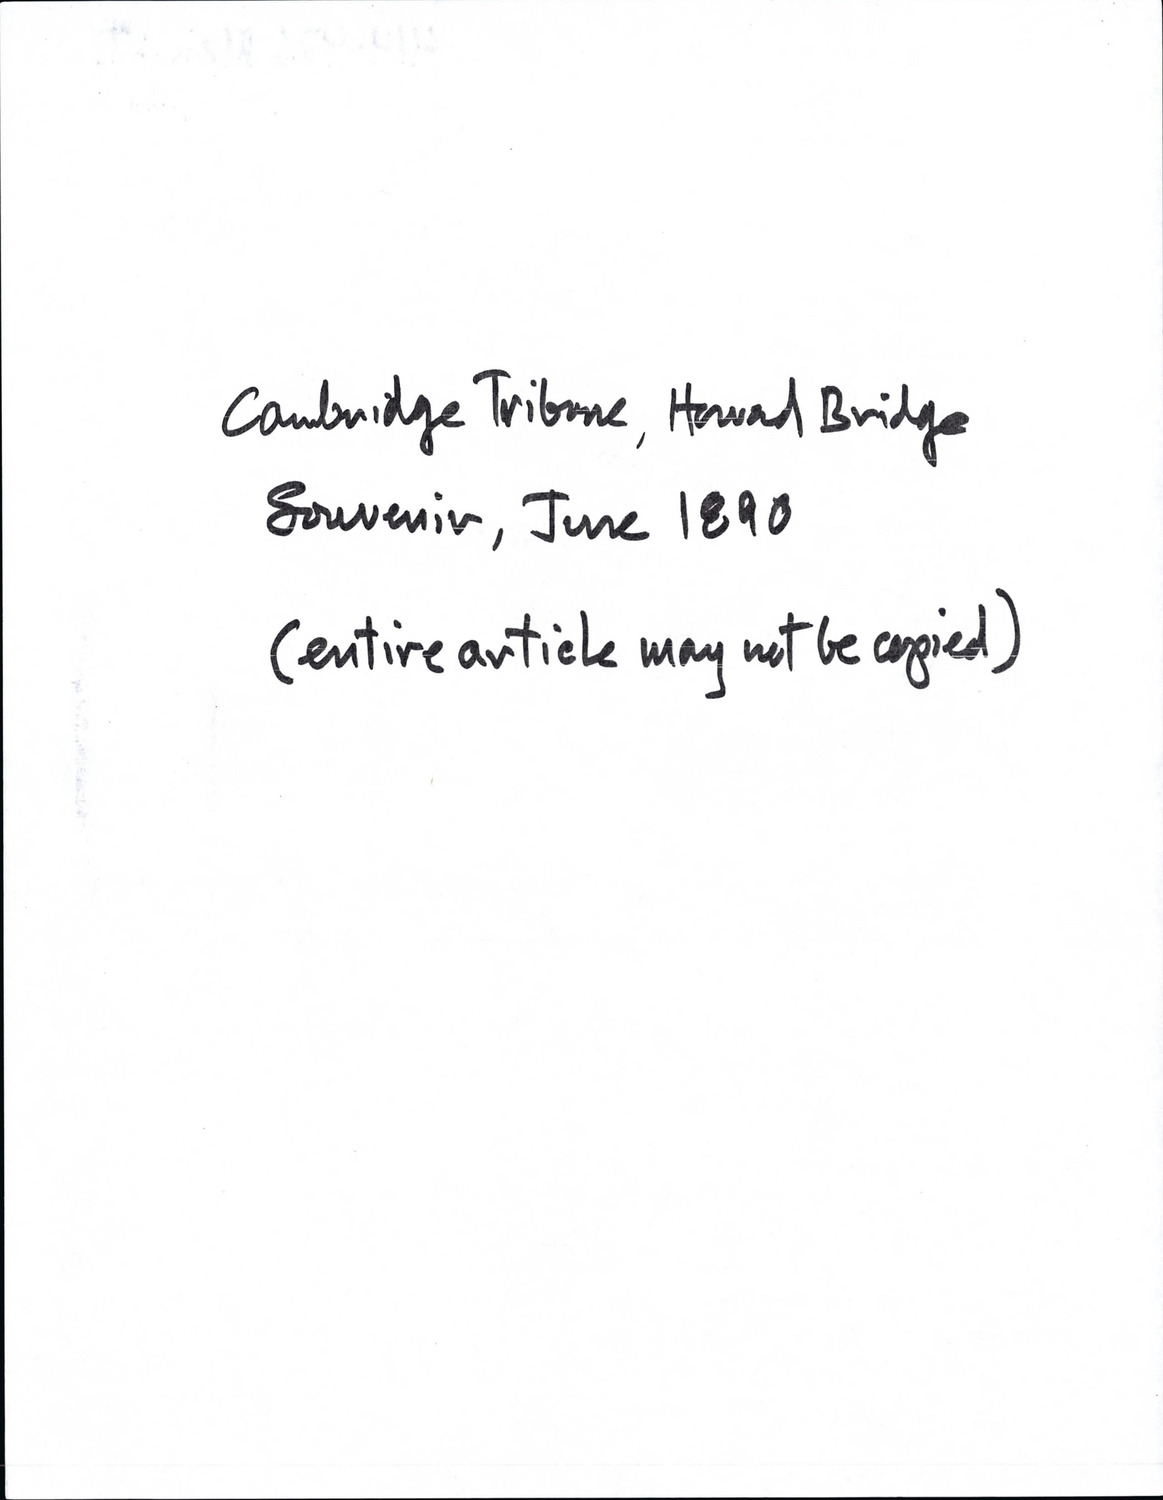 Cambridge Tribune, Harvard Bridge
Souvenir, June 1890
(entire article may not be copied)